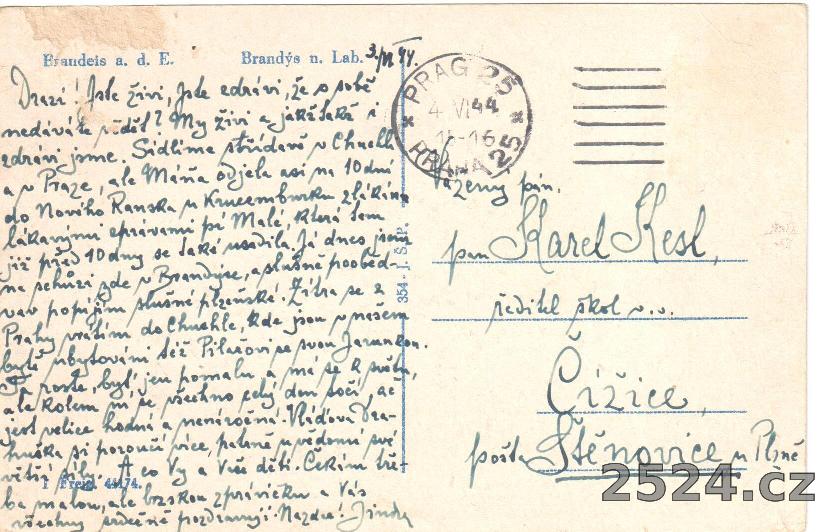 Brandeis a. d. E. Brandýs n. Lab. 3./VI 44.
Drazí! Jste živi, jste zdrávi, že o sobě
nedáváte vědět? My živi a jakžtakž i
zdrávi jsme. Sídlíme střídavě v Chuchli
a v Praze, ale Máňa odjela asi na 10 dní
do Nového Ranska u Krucemburku zlákána
lákavými zprávami pí Malé, která sem
již před 10 dny se také usadila. Já dnes jsem
na schůzi zde v Brandýse, a slušně pooběd-
vav popíjím slušné plzeňské. Zítra se z
Prahy vrátím do Chuchle, kde jsou v našem
bytě ubytováni též Pilařovi se svou Jarunkou.
Ta roste, byť jen pomalu a má se k světu,
ale kolem ní se všechno celý den točí, ač
jest velice hodná a nenáročná. Vláďova Dra-
huška si poroučí více, patrně u vědomí své
větší síly. A co Vy a Vaše děti. Čekám tře-
ba malou, ale brzkou zprávičku a Vás
všechny srdečně pozdravuji. Nazdar! Jindra
J. 44174.
354 - J. Š. P.
PRAG 25
4 VI 44
15-16
PRAHA 25
Vážený pán,
pan Karel Kesl,
ředitel škol v. v.
Čižice,
pošta Štěnovice u Plzně
2524.cz